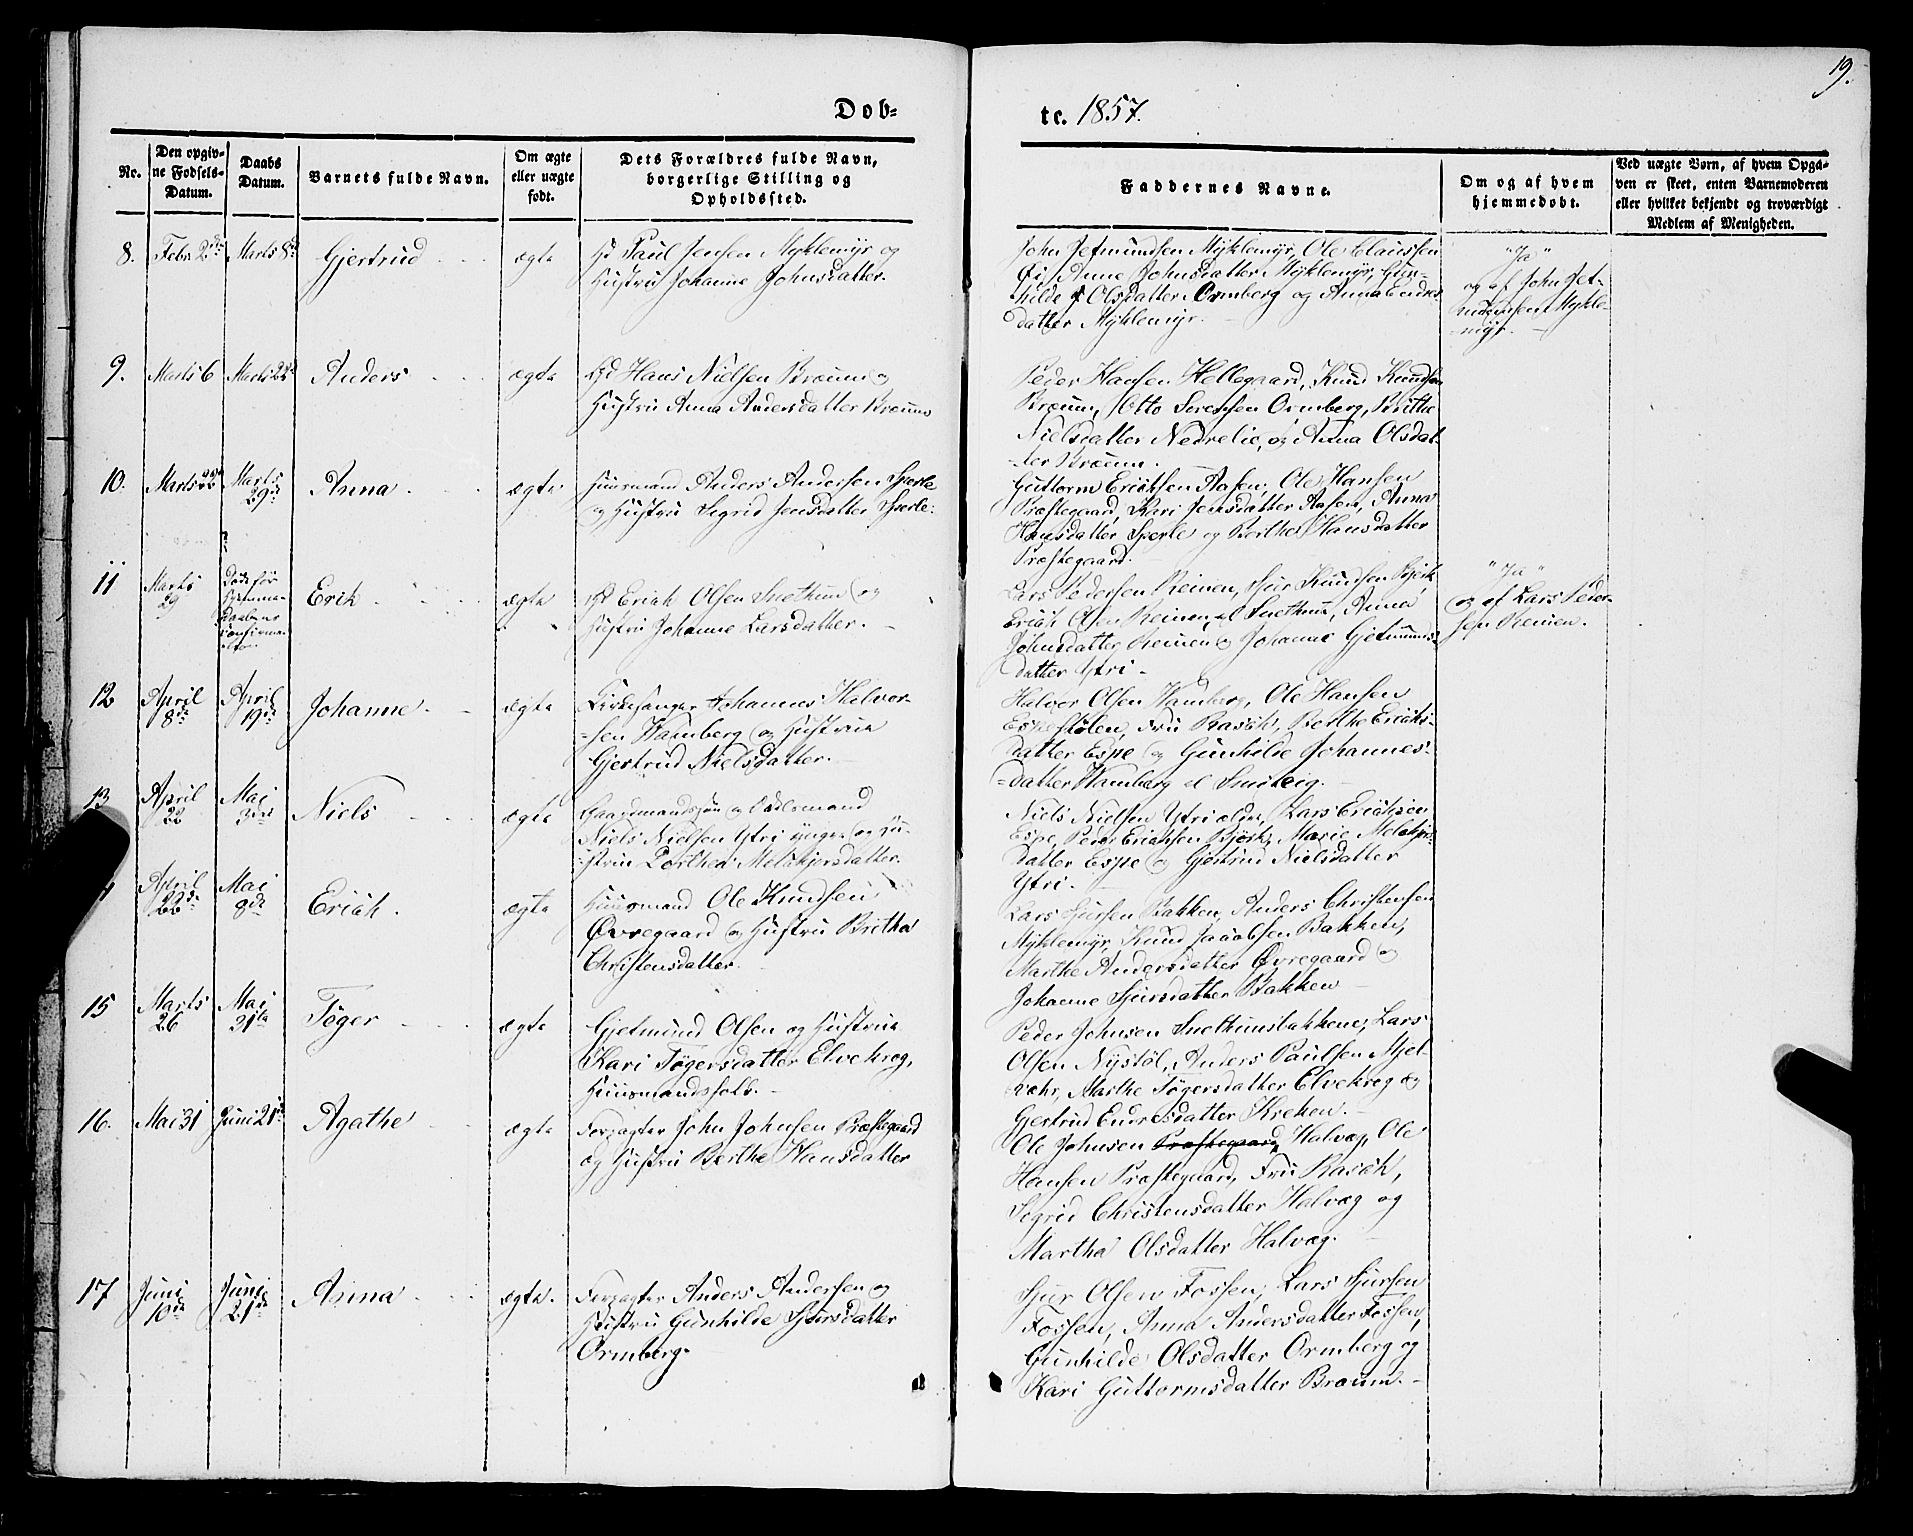 19.
Dob-
te. 1857.
Nr.
Den opgiv-
ne Fødsels-
Datum.
Daabs
Datum.
Barnets fulde Navn.
Om ægte
eller uægte
født.
Dets Forældres fulde Navn,
borgerlige Stilling og
Opholdssted.
Faddernes Navne.
Om og af hvem
hjemmedøbt.
Ved uægte Børn, af hvem Opga-
ven er skeet, enten Barnemoderen
eller hvilket bekjendt og troværdigt
Medlem af Menigheden.
8. Febr. 2den Marts 8de Gjertrud ægte
Gd Paul Jensen Myklemyr og
Hustru Johanne Johnsdatter.
John Jetmundsen Myklemyr, Ole Claussen
Øi, Anne Johnsdatter Myklemyr, Gun-
hilde Olsdatter Ormberg og Anna Endres
datter Myklemyr.
"Ja"
og af John Jet-
mundsen Mykle-
myr.
9. Marts 6 Marts 22 Anders ægte
Gd Hans Nielsen Bræum og
Hustru Anna Andersdatter Bræum
Peder Hansen Hellegaard, Knud Knudsen
Bræum, Otto Sørensen Ormberg, Brithe
Nielsdatter Nedrelie, og Anna Olsdat-
ter Bræum.
10. Marts 22 Marts
29de Anna ægte
Huusmand Anders Andersen Sperle
og Hustru Sigrid Jensdatter Sperle.
Guttorm Erichsen Aasen, Ole Hansen
Præstegaard, Kari Jensdatter Aasen, Anna
Hansdatter Sperle og Berthe Hansdatter
Præstegaard.
11 Marts
29
Døde før
Hjemme-
Daaben
Erik ægte
Gd Erich Olsen Snethun og
Hustru Johanne Larsdatter.
Lars Pedersen Reinen, Sjur Knudsen Bjørk
Erich Olsen Reinen, Snethun, Anna
Johnsdatter Reinen og Johanne Gjetmunds-
datter Ytri.
"Ja"
og af Lars Peder-
sen Reinen.
12 April
8de
April
19de Johanne ægte
Kirkesanger Johannes Halvor-
sen Hamberg og Hustrue
Gjertrud Nielsdatter.
Halvor Olsen Hamberg, Ole Hansen
Espestølen, Fru Rasch, Berthe Erichs-
datter Espe og Gunhilde Johannes-
datter Hamberg
13 April
22
Mai
3die Niels ægte
Gaardmandssøn og
Niels Nielsen Ytri yngre og Hu-
stru Dorthea Melchjorsdatter.
Niels Nielsen Ytri ældre, Lars Erichsen
Espe, Peder Erichsen Bjørk, Marie Melchjors-
datter Espe og Gjertrud Nielsdatter
Ytri.
April
22de
Mai
8de Erich. ægte
Huusmand Ole Knudsen
Øvregaard og Hustru Britha
Christensdatter.
Lars Sjursen Bakken, Anders Christensen
Myklemyr, Knud Jacobsen Bakken,
Marthe Andersdatter Øvregaard og
Johanne Sjursdatter Bakken
15 Marts
26
Mai
31te Tøger ægte
Gjetmund Olsen og Hustrue
Kari Tøgersdatter Elvekrog,
Huusmandsfolk.
Peder Johnsen Snethunsbakkene, Lars
Olsen Nystøl, Anders Paulsen Mjel-
væhr, Marthe Tøgersdatter Elvekrog og
Gjertrud Endresdatter Kreken.
16. Mai 31 Juni 21de Agathe ægte
Forpagter John Johnsen Præstegaard
og Hustru Berthe Hansdatter
Ole Johnsen Præstegaard, Halvæg, Ole
Hansen Præstegaard, Fru Rasch,
Sigrid Christensdatter Halvæg og
Martha Olsdatter Halvæg.
17 Juni
10de
Juni
21de Anna ægte.
Forpagter Anders Andersen og
Hustru Gunhilde Sjursdatter
Ormberg.
Sjur Olsen Fossen, Lars Sjursen
Fossen, Anna Andersdatter Fossen,
Gunhilde Olsdatter Ormberg og
Kari Guttormsdatter Bræum.